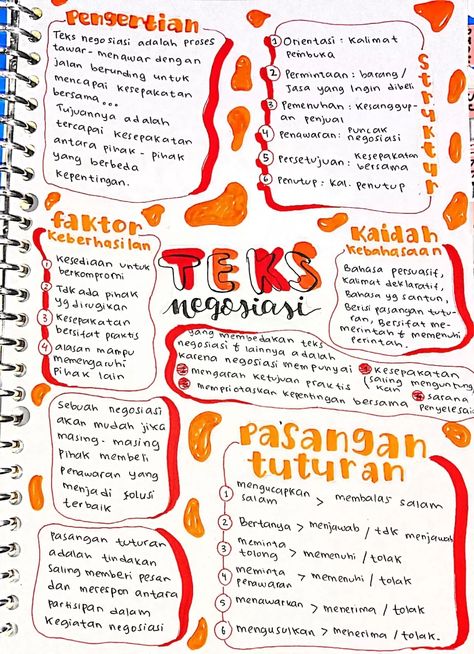 Pengertian
Teks negosiasi adalah proses
tawar-menawar dengan
jalan berunding untuk
mencapai kesepakatan
bersama...
Tujuannya adalah
tercapai kesepakatan
antara pihak-pihak
yang berbeda
kepentingan.
Struktur
1 Orientasi : Kalimat
Pembuka
2 Permintaan : barang /
Jasa yang Ingin dibeli
3 Pemenuhan : Kesanggup-
an Penjual
4 Penawaran : Puncak
negosiasi
5 Persetujuan : Kesepakatan
bersama
6 Penutup : Kal. penutup
faktor
Keberhasilan
1 Kesediaan untuk
berkompromi
2 Tdk ada pihak
yg dirugikan
3 Kesepakatan
bersifat praktis
4 alasan mampu
memengaruhi
Pihak lain
TEKS
negosiasi
Kaidah
Kebahasaan
Bahasa persuasif,
Kalimat deklaratif,
Bahasa yg santun,
Berisi pasangan tutu-
ran, Bersifat me-
merintah & memenuhi
perintah.
yang membedakan teks
negosiasi & lainnya adalah
karena negosiasi mempunyai
mengarah ketujuan praktis
memprioritaskan kepentingan bersama
Kesepakatan
(saling menguntung
kan
Sarana
Penyelesai
Sebuah negosiasi
akan mudah jika
masing-masing
pihak memberi
Penawaran yang
menjadi solusi
terbaik
Pasangan tuturan
adalah tindakan
Saling memberi pesan
dan merespon antara
partisipan dalam
Kegiatan negosiasi
Pasangan
tuturan
1 mengucapkan salam > membalas salam
2 Bertanya > menjawab / tdk menjawab
3 meminta tolong > memenuhi / tolak
4 meminta penawaran > memenuhi / tolak
5 menawarkan > menerima / tolak
6 mengusulkan > menerima / tolak.